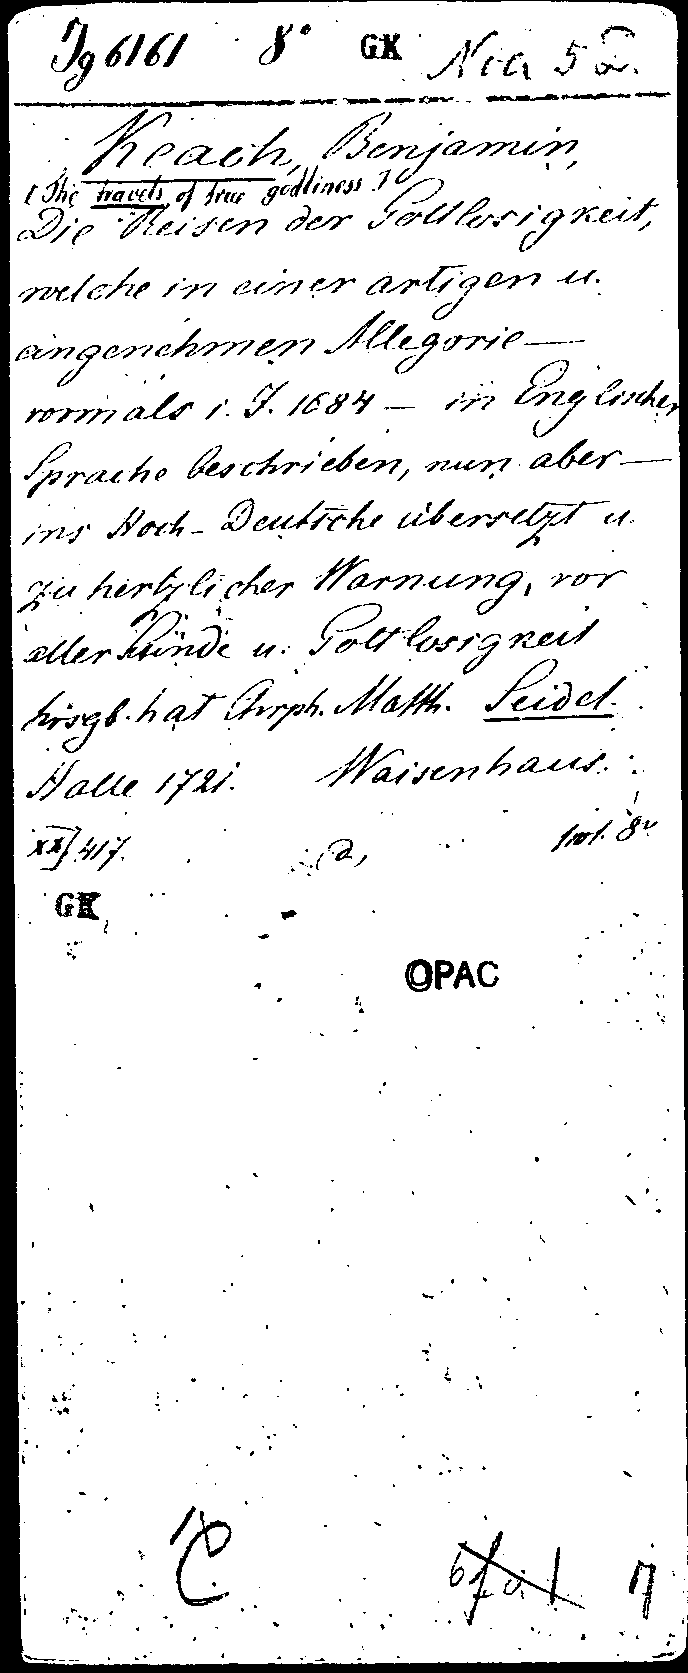 Jg 6161 8° GK Noa 52.
Keach, Benjamin,
[The travels of true godliness.]
Die Reisen der Gottlosigkeit,
welche in einer artigen u.
angenehmen Allegorie —
vormals i. J. 1684 — in Englischer
Sprache beschrieben, nun aber —
ins Hoch-Deutsche übersetzt u.
zu hertzlicher Warnung, vor
aller Sünde u. Gottlosigkeit
hrsgb. hat Chrph. Matth. Seidel.
Halle 1721. Waisenhaus.
XX] 417. 8°
GK
OPAC